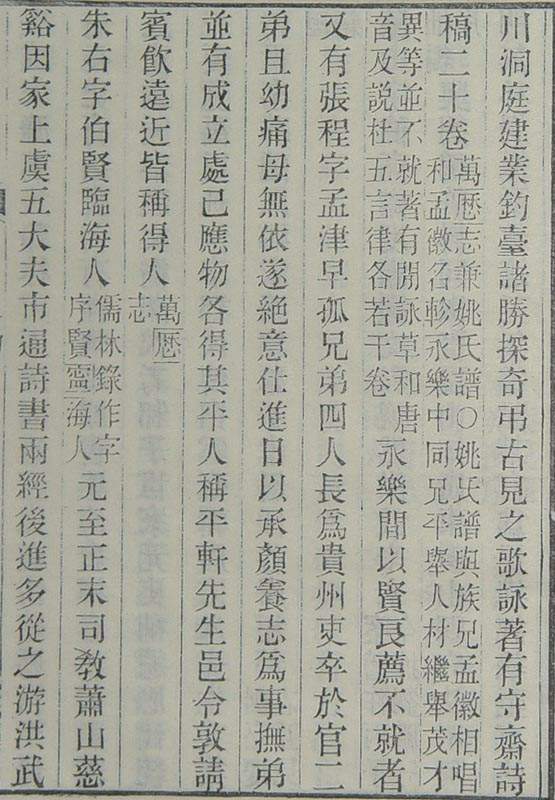 川洞庭建業釣臺諸勝探奇弔古見之歌詠著有守齋詩
稿二十卷萬厯志兼姚氏譜○姚氏譜與族兄孟徽相唱
和孟徽名軫永樂中同兄平舉人材繼舉茂才
異等並不就著有閒詠草和唐
音及説杜五言律各若干卷永樂間以賢良薦不就者
又有張程字孟津早孤兄弟四人長爲貴州吏卒於官二
弟且幼痛母無依遂絶意仕進日以承顔養志爲事撫弟
並有成立處己應物各得其平人稱平軒先生邑令敦請
賓飮遠近皆稱得人萬厯
志
朱右字伯賢臨海人儒林錄作字
序賢寧海人元至正末司敎蕭山慈
谿因家上虞五大夫市通詩書兩經後進多從之游洪武